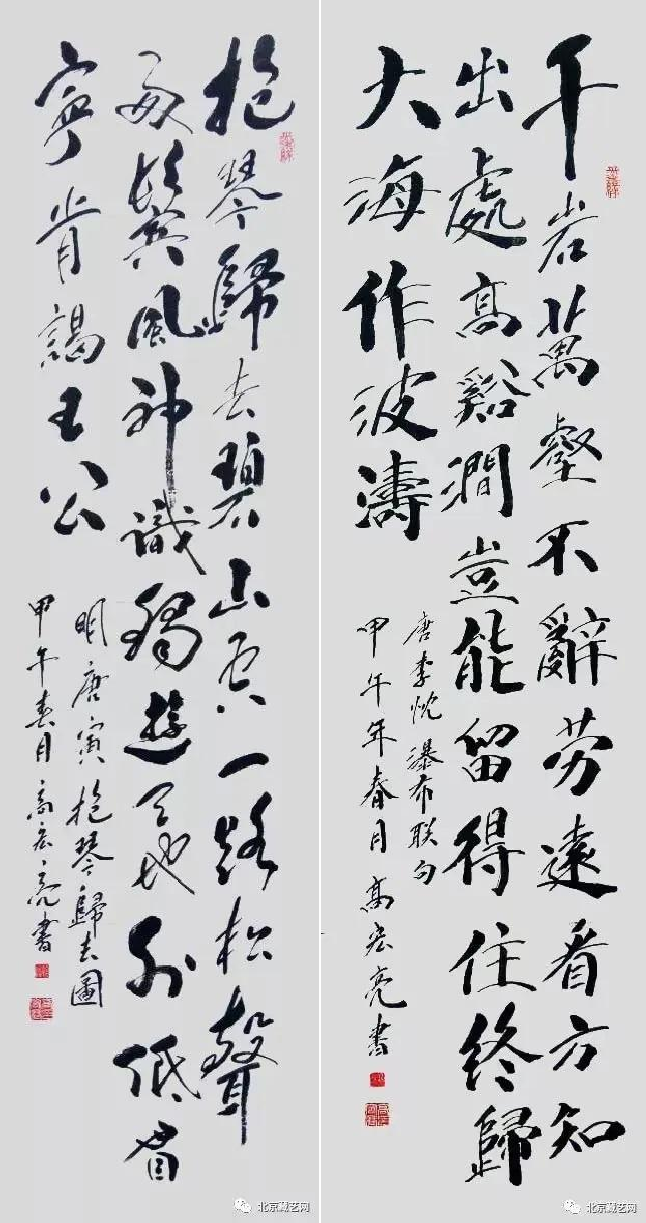 千岩萬壑不辭劳遠看方知
出處高谿澗豈能留得住终歸
大海作波濤
唐李忱瀑布联句
甲午年春月高宏亮書
抱琴歸去碧山空一路松聲
两鬓風神識獨遊天地外低眉
寧肯謁王公
明唐寅抱琴歸去圖
甲午春月高宏亮書
北京藏艺网
北京藏艺网